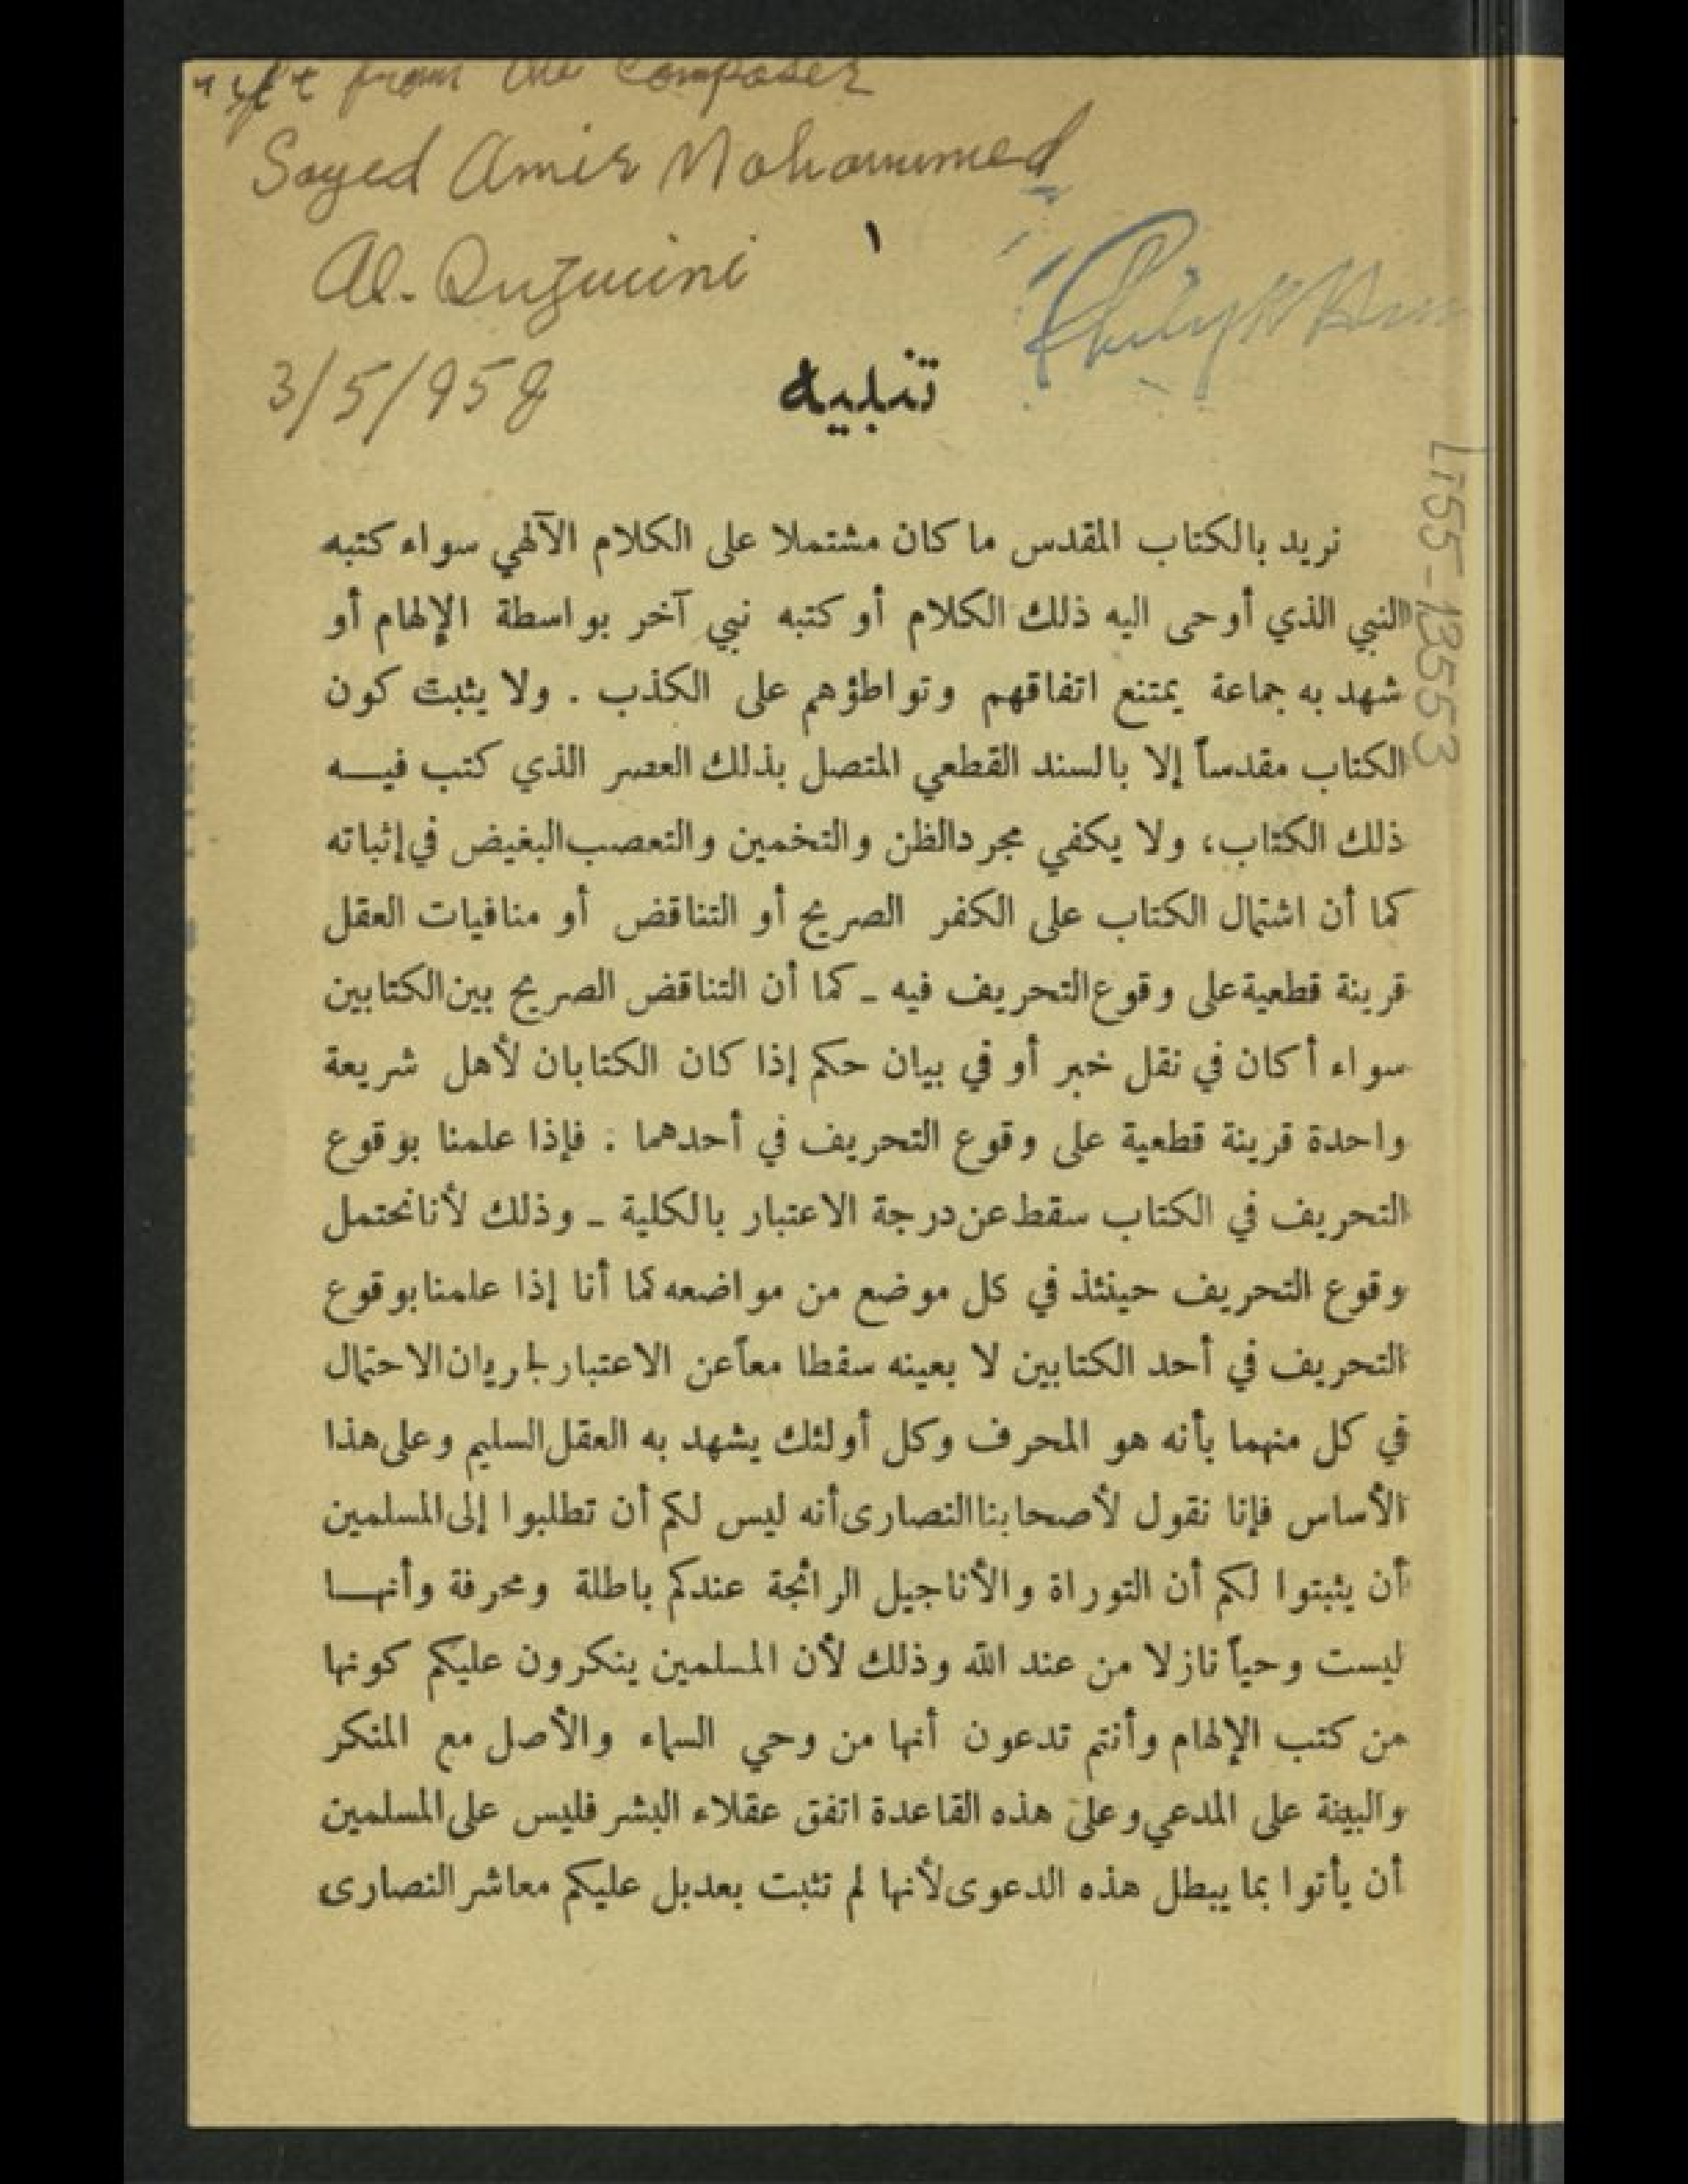 gift from the Composer
Sayed Amir Mohammed
Al-Quzwini
3/5/958
١
LT55-13553
تنبيه
نريد بالكتاب المقدس ما كان مشتملا على الكلام الآلهي سواء كتبه
النبي الذي أوحى اليه ذلك الكلام أو كتبه نبي آخر بواسطة الإلهام أو
شهد به جماعة يمتنع اتفاقهم وتواطؤهم على الكذب . ولا يثبت كون
الكتاب مقدساً إلا بالسند القطعي المتصل بذلك العصر الذي كتب فيــه
ذلك الكتاب، ولا يكفي مجرد الظن والتخمين والتعصب البغيض في إثباته
كما أن اشتمال الكتاب على الكفر الصريح أو التناقض أو منافيات العقل
قرينة قطعية على وقوع التحريف فيه ـ كما أن التناقض الصريح بين الكتابين
سواء أكان في نقل خبر أو في بيان حكم إذا كان الكتابان لأهل شريعة
واحدة قرينة قطعية على وقوع التحريف في أحدهما . فإذا علمنا بوقوع
التحريف في الكتاب سقط عن درجة الاعتبار بالكلية ـ وذلك لأنا نحتمل
وقوع التحريف حينئذ في كل موضع من مواضعه كما أنا إذا علمنا بوقوع
التحريف في أحد الكتابين لا بعينه سقطا معاً عن الاعتبار لجريان الاحتمال
في كل منهما بأنه هو المحرف وكل أولئك يشهد به العقل السليم وعلى هذا
الأساس فإنا نقول لأصحابنا النصارى أنه ليس لكم أن تطلبوا إلى المسلمين
أن يثبتوا لكم أن التوراة والأناجيل الرائجة عندكم باطلة ومحرفة وأنهــا
ليست وحياً نازلا من عند الله وذلك لأن المسلمين ينكرون عليكم كونها
من كتب الإلهام وأنتم تدعون أنها من وحي السماء والأصل مع المنكر
والبينة على المدعي وعلى هذه القاعدة اتفق عقلاء البشر فليس على المسلمين
أن يأتوا بما يبطل هذه الدعوى لأنها لم تثبت بعد بل عليكم معاشر النصارى